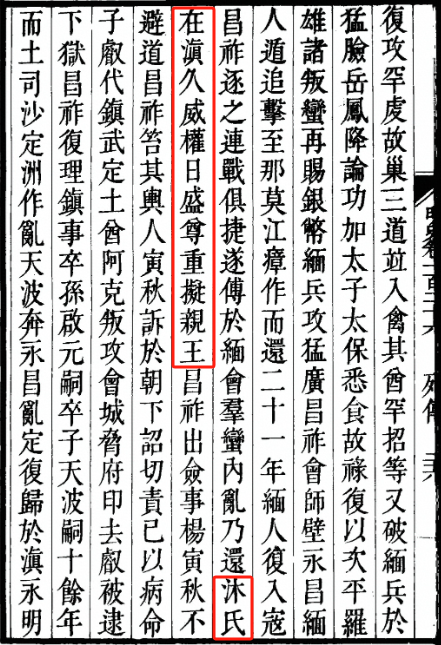 復攻罕虔故巢三道竝入禽其酋罕招等又破緬兵於
猛臉岳鳳降論功加太子太保悉食故祿復以次平羅
雄諸叛蠻再賜銀幣緬兵攻猛廣昌祚會師壁永昌緬
人遁追擊至那莫江瘴作而還二十一年緬人復入寇
昌祚逐之連戰俱捷遂傅於緬會羣蠻內亂乃還沐氏
在滇久威權日盛尊重擬親王昌祚出僉事楊寅秋不
避道昌祚笞其輿人寅秋訴於朝下詔切責已以病命
子叡代鎮武定土酋阿克叛攻會城脅府印去叡被逮
下獄昌祚復理鎮事卒孫啟元嗣卒子天波嗣十餘年
而土司沙定洲作亂天波奔永昌亂定復歸於滇永明